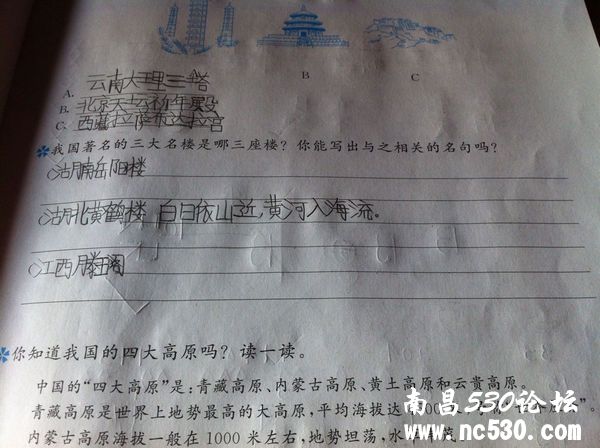 B C
A. 云南大理三塔
B. 北京天坛祈年殿
C. 西藏拉萨布达拉宫
我国著名的三大名楼是哪三座楼？你能写出与之相关的名句吗？
湖南岳阳楼
湖北黄鹤楼 白日依山近，黄河入海流。
江西滕王阁
你知道我国的四大高原吗？读一读。
中国的“四大高原”是：青藏高原、内蒙古高原、黄土高原和云贵高原。
青藏高原是世界上地势最高的大高原，平均海拔达
内蒙古高原海拔一般在1000米左右，地势坦荡，水草
南昌530论坛
www.nc530.com